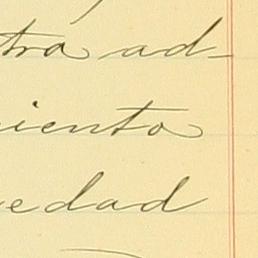 tra ad-
iento
edad